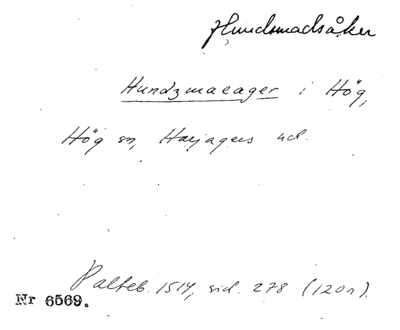 Hundsmadsåker
Hundzmaeager i Hög,
Hög sn, Harjagers hd.
Palteb. 1514, sid. 278 (120r).
Nr 6569.